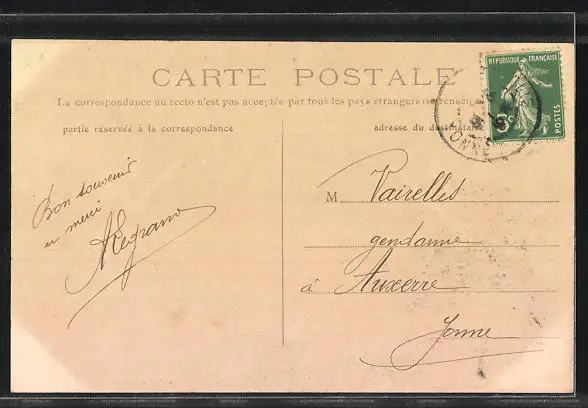 CARTE POSTALE
La correspondance au recto n'est pas acceptée par tous les pays étrangers
partie réservée à la correspondance
adresse du destinataire
RÉPUBLIQUE FRANÇAISE
5c
POSTES
YONNE
Bon souvenir
et merci
ALegrand
M Vairelles
gendarme
à Auxerre
Yonne